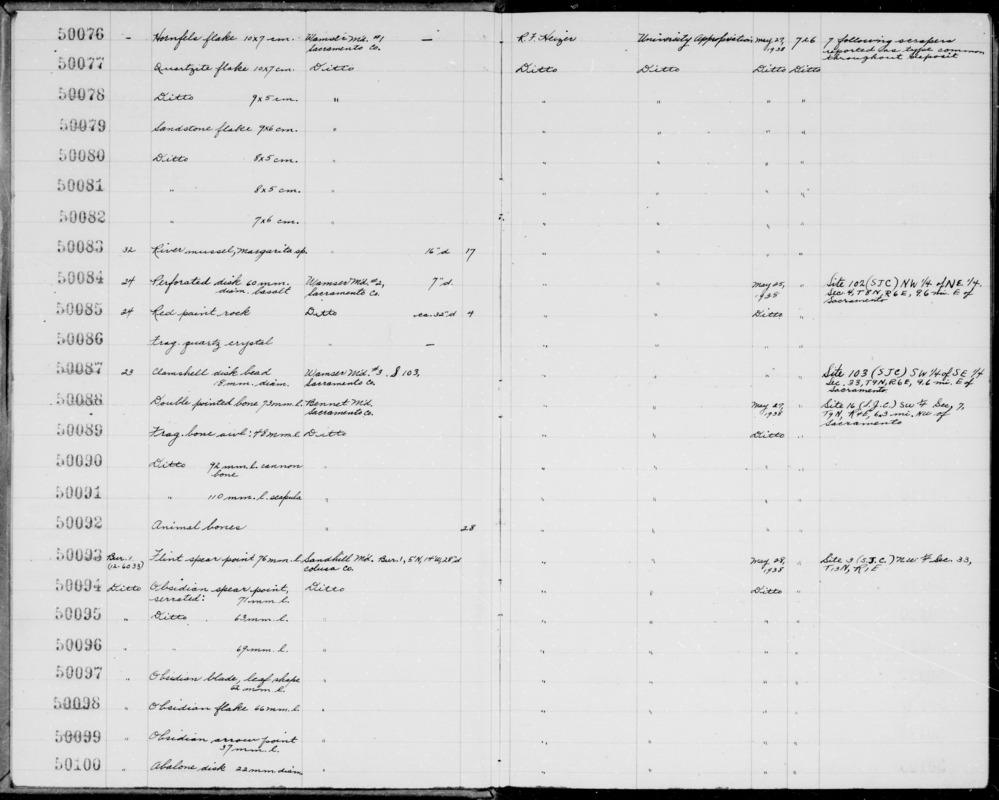 50076 - Hornfels flake 10x7 cm. Wamser Md. #1 — R.F. Heizer University Appropriation May 27, 7x6 7 following scrapers
Sacramento Co. 1938 reported as type common
throughout deposit
50077 Quartzite flake 10x7 cm. Ditto Ditto Ditto Ditto Ditto
50078 Ditto 9x5 cm. " " " " "
50079 Sandstone flake 9x6 cm. " " " " "
50080 Ditto 8x5 cm. " " " " "
50081 " 8x5 cm. " " " " "
50082 " 7x6 cm. " " " " "
50083 32 River mussel, Margarita sp. " 16"d 17 " " " "
50084 24 Perforated disk 60 mm. Wamser Md. #2, 7"d. " " May 25, " Site 102 (SJC) NW 1/4 of NE 1/4.
diam. basalt Sacramento Co. 1938 Sec 4, T8N, R6E, 9.6 mi. E of
Sacramento
50085 24 Red paint rock Ditto ca. 32"d 4 " " Ditto "
50086 Frag. quartz crystal " — " " " "
50087 23 Clamshell disk bead Wamser Md. #3. S 103, " " " " Site 103 (SJC) SW 1/4 of SE 1/4
8 mm. diam. Sacramento Co. Sec. 33, T9N, R6E, 9.6 mi. E of
Sacramento.
50088 Double pointed bone 73 mm. l. Bennet Md. " " May 27, " Site 16 (S.J.C.) SW 1/4 Sec. 7,
Sacramento Co. 1938 T9N, R4E, 6.3 mi. NW of
Sacramento
50089 Frag. bone awl: 48 mm l. Ditto " " Ditto "
50090 Ditto 92 mm. l. cannon " " " " "
bone
50091 " 110 mm. l. scapula " " " " "
50092 Animal bones " 28 " " " "
50093 Bur. 1 Flint spear point 76 mm. l. Sandhill Md. Bur. 1, 5'N, 14'W, 28"d " " May 28, " Site 3 (S.J.C.) NW 1/4 Sec. 33,
(12-6033) Colusa Co. 1938 T13N, R1E
50094 Ditto Obsidian spear point, Ditto " " Ditto "
serrated: 71 mm. l.
50095 " Ditto 63 mm. l. " " " " "
50096 " " 69 mm. l. " " " " "
50097 " Obsidian blade, leaf shape " " " " "
62 mm. l.
50098 " Obsidian flake 66 mm. l. " " " " "
50099 " Obsidian arrow point " " " " "
37 mm. l.
50100 " Abalone disk 22 mm diam. " " " " "